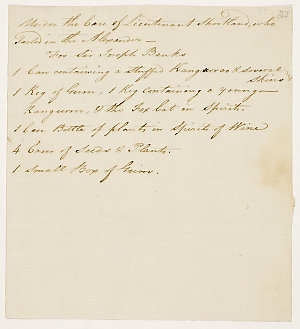 Under the Care of Lieutenant Shortland, who
Sailed in the Alexander —
For Sir Joseph Banks
1 Case containing a Stuffed Kangaroo & several
Skins
1 Keg of Gum, 1 Keg Containing a young
Kanguroo, & the Fox Cat in Spirits.
1 Case Bottle of plants in Spirits of Wine
4 Cases of Seeds & Plants.
1 Small Box of Gum.